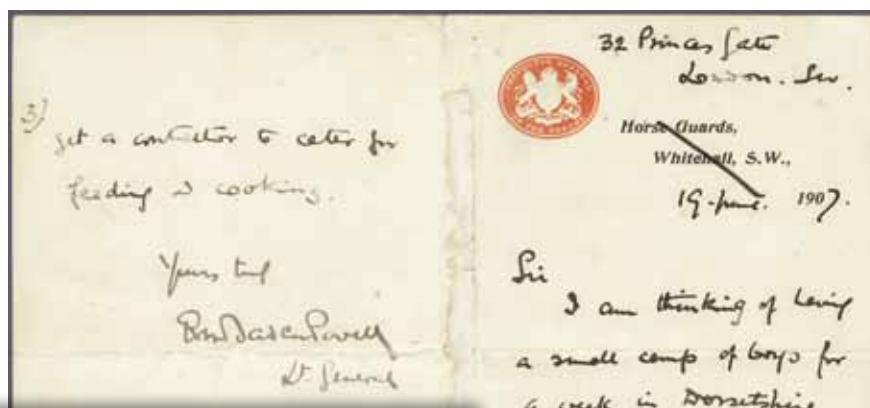 3)
get a contractor to cater for
feeding & cooking.
Yours truly
R.S.S. Baden-Powell
Lt General
32 Princes Gate
London. SW.
Horse Guards,
Whitehall, S.W.,
19. June. 1907.
Sir
I am thinking of having
a small camp of boys for
a week in Dorsetshire